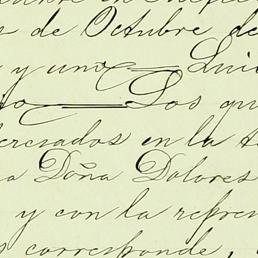 de Octubre de
y uno — Luis
Los qu
teresados en la te
Doña Dolores
y con la repres
corresponde,